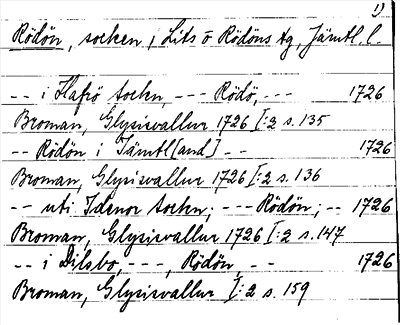 1)
Rödön, socken i Lits o Rödöns tg, Jämtl. l.
-- i Hafrö socken, --- Rödö, --- 1726
Broman, Glysisvallur 1726 I:2 s. 135
-- Rödön i Jämtl[and] -- 1726
Broman, Glysisvallur 1726 I:2 s. 136
-- uti Idenor socken; --- Rödön; -- 1726
Broman, Glysisvallur 1726 I:2 s. 147
-- i Dilsbo, ---, Rödön, -- 1726
Broman, Glysisvallur I:2 s. 159